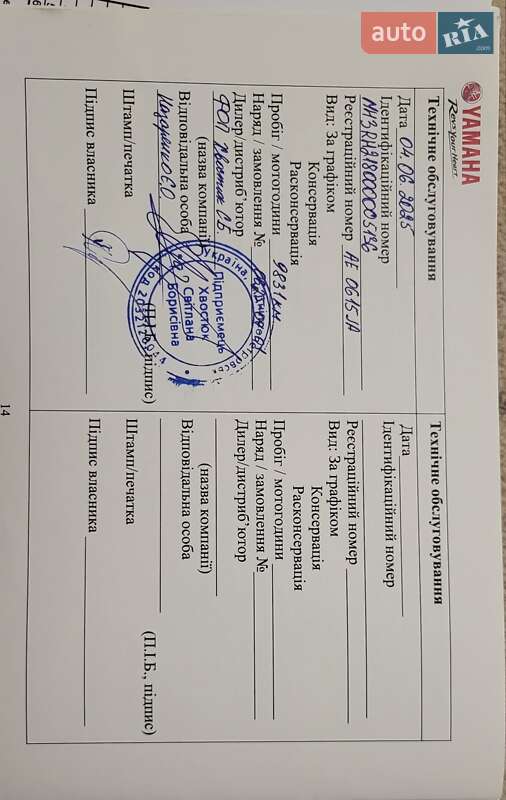 auto RIA .com
YAMAHA
Revs Your Heart.
Технічне обслуговування
Дата 04.06.2025
Ідентифікаційний номер
Реєстраційний номер АЕ 0615 ІА
Вид: За графіком
Консервація
Расконсервація
Пробіг / мотогодини 9831 км
Наряд / замовлення №
Дилер/дистриб'ютор
ФОП Хвостюк С.Б.
(назва компанії)
Відповідальна особа
(П.І.Б., підпис)
Штамп/печатка
Україна,
Підприємець
Хвостюк
Світлана
Борисівна
Підпис власника
Технічне обслуговування
Дата
Ідентифікаційний номер
Реєстраційний номер
Вид: За графіком
Консервація
Расконсервація
Пробіг / мотогодини
Наряд / замовлення №
Дилер/дистриб'ютор
(назва компанії)
Відповідальна особа
(П.І.Б., підпис)
Штамп/печатка
Підпис власника
14